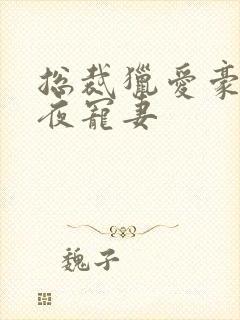 总裁猎爱豪
夜宠妻
魏子